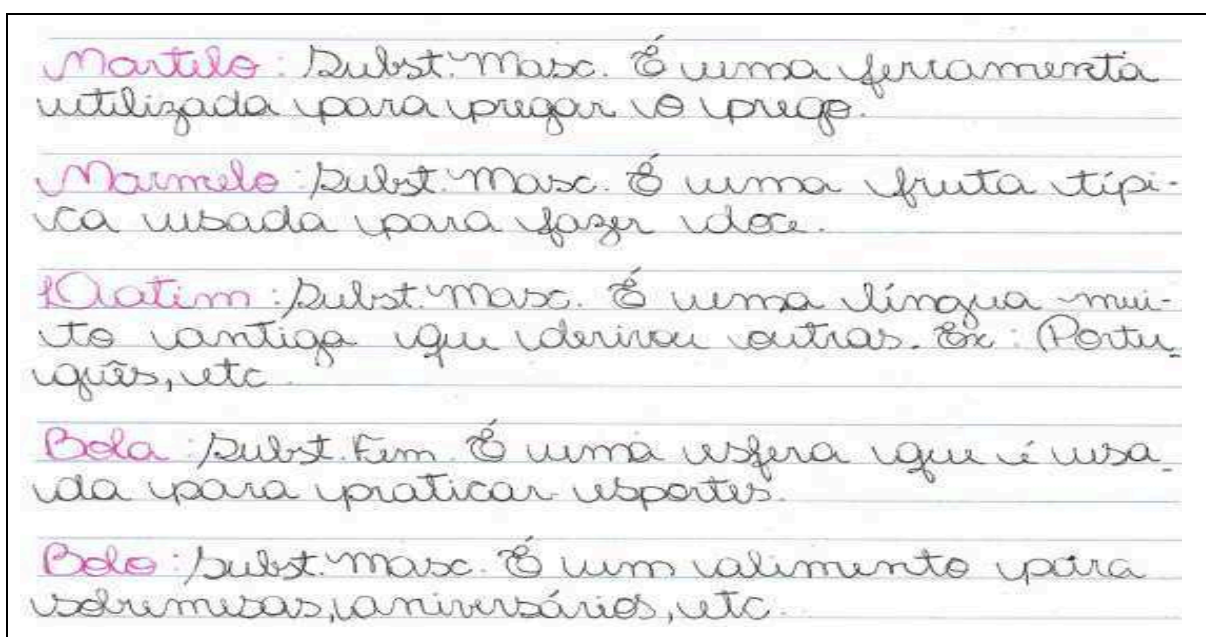 Martelo: Subst. Masc. É uma ferramenta
utilizada para pregar o prego.
Marmelo: Subst. Masc. É uma fruta típi-
ca usada para fazer doce.
Latim: Subst. Masc. É uma língua mui-
to antiga que derivou outras. Ex: Portu_
guês, etc.
Bola: Subst. Fem. É uma esfera que é usa_
da para praticar esportes.
Bolo: Subst. Masc. É um alimento para
sobremesas, aniversários, etc.